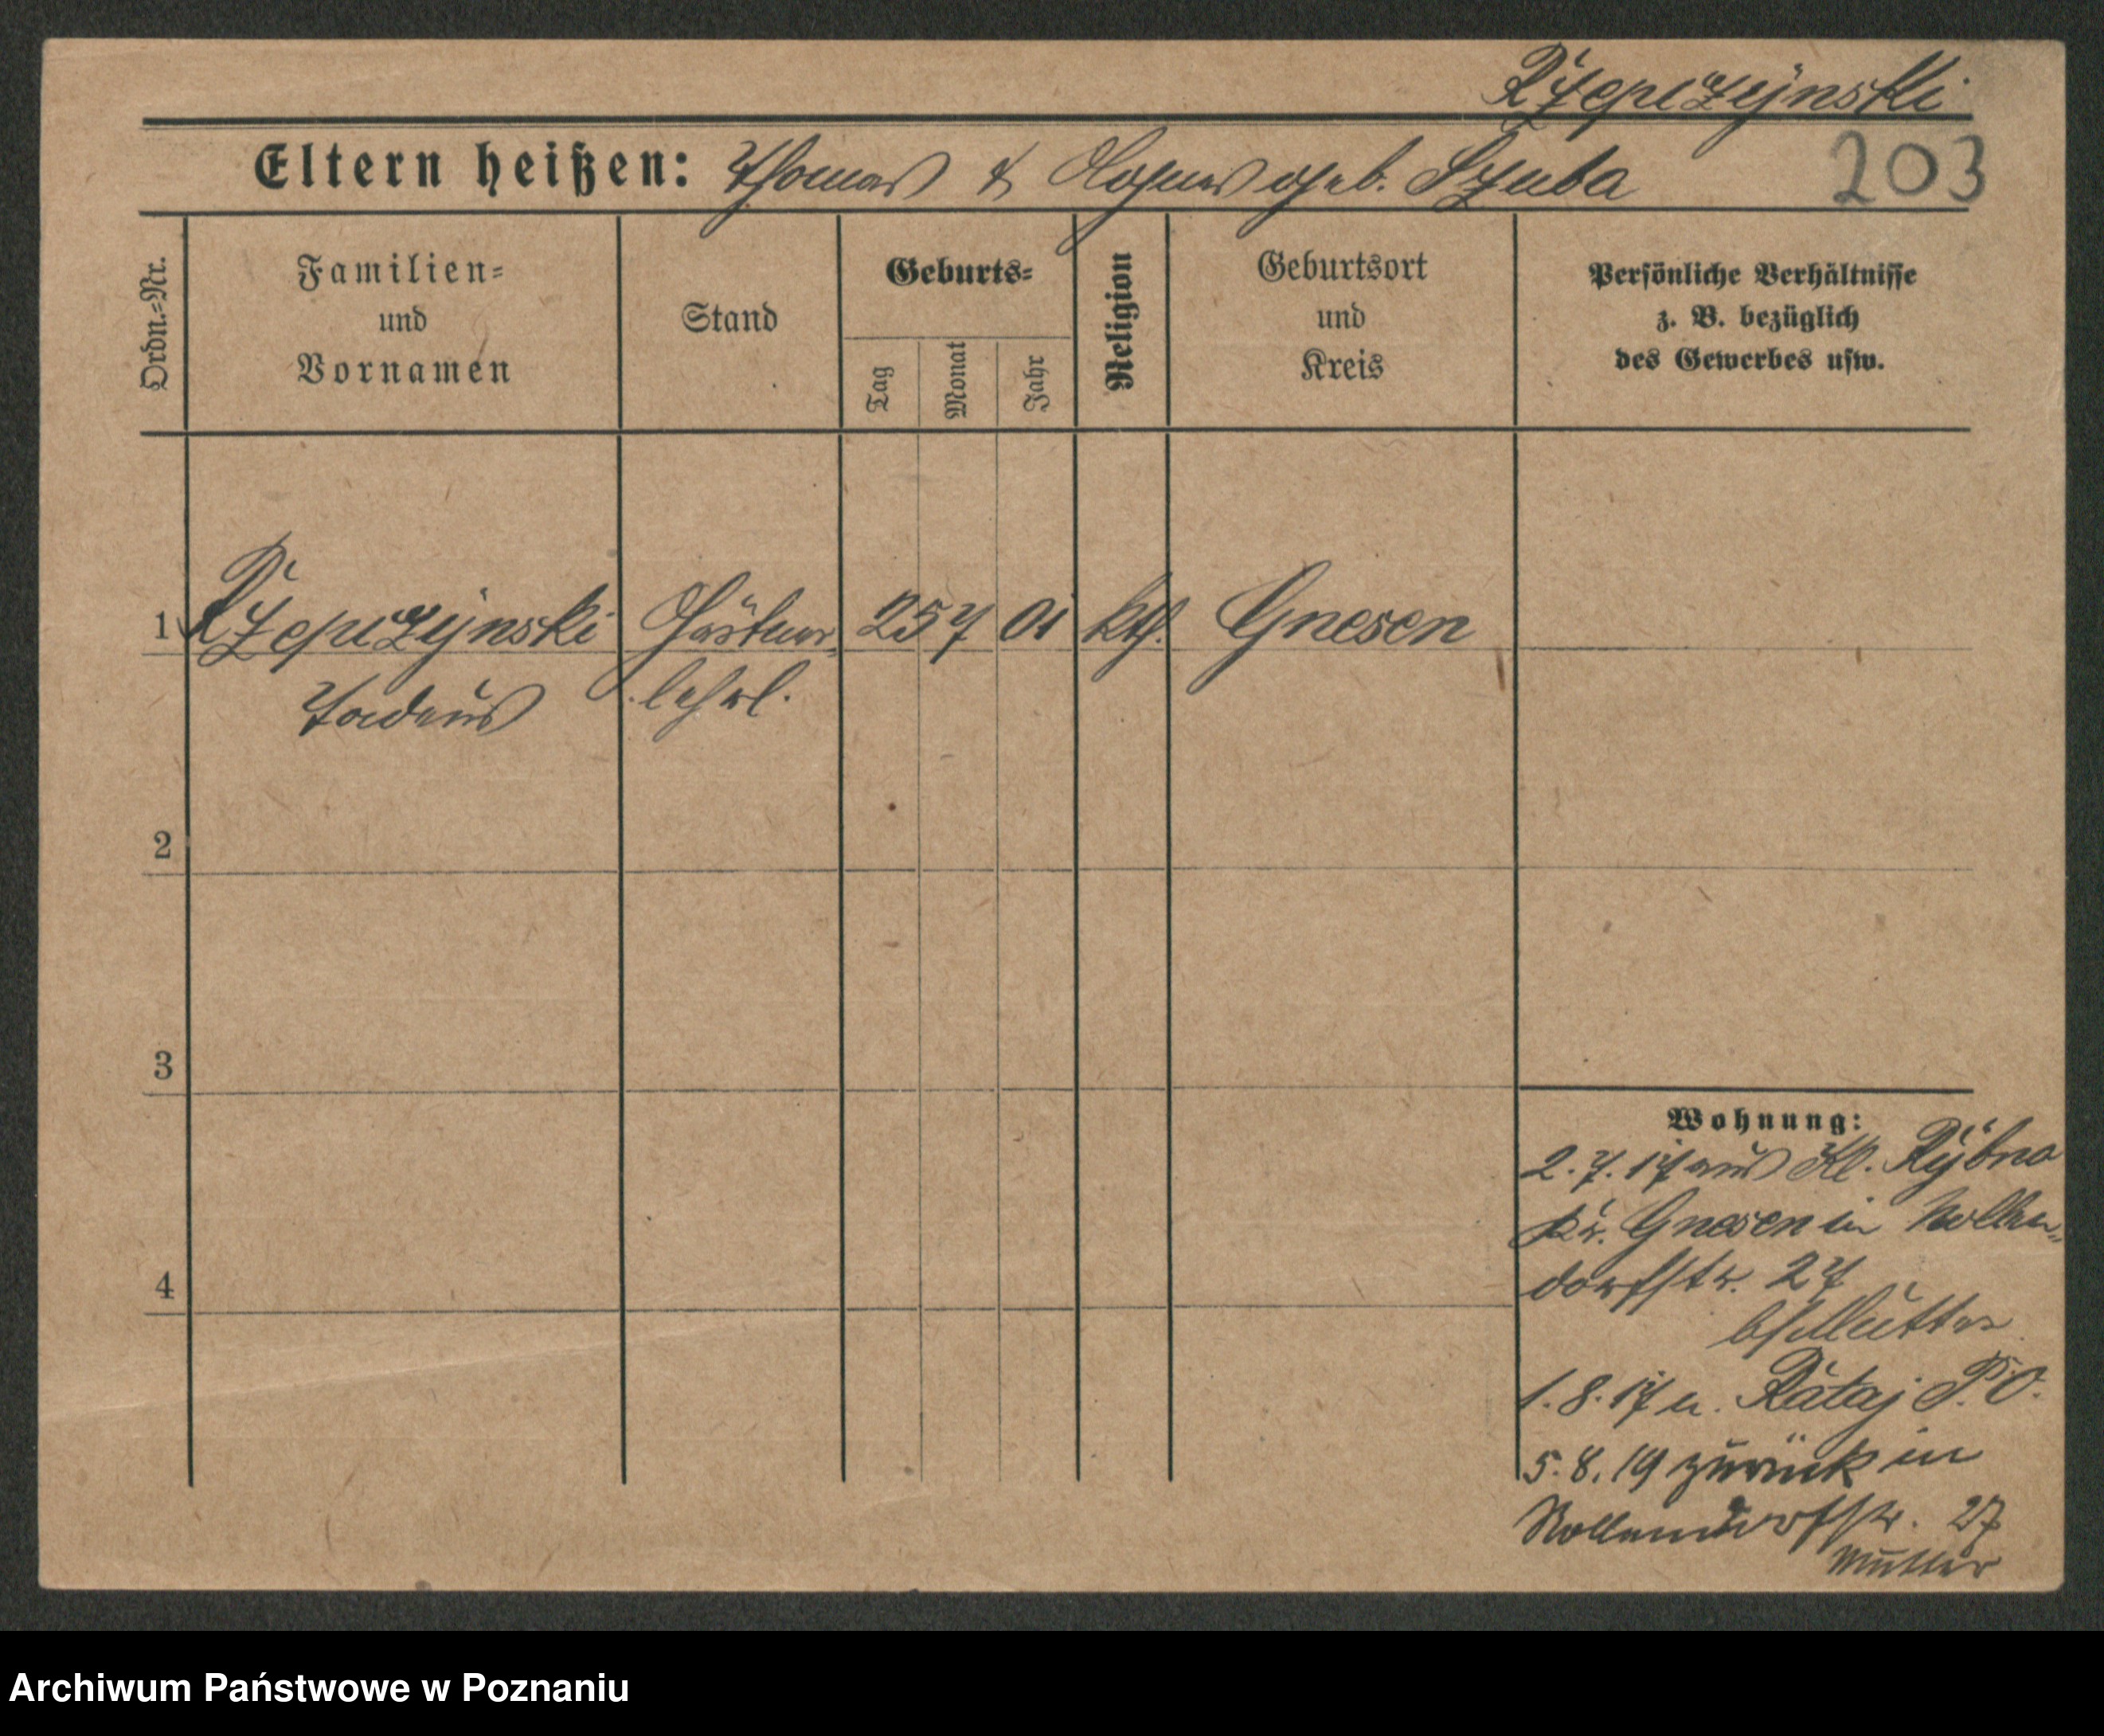 Rzepczynski
Eltern heißen: Thomas & Agnes geb. Szuba 203
Ordn.-Nr.
Familien-
und
Vornamen
Stand
Geburts-
Tag
Monat
Jahr
Religion
Geburtsort
und
Kreis
Persönliche Verhältnisse
z. B. bezüglich
des Gewerbes usw.
1 Rzepczynski Gärtner- 25 7 01 kth. Gnesen
Tadeus lehrl.
2
3
4
Wohnung:
2. 7. 17 aus Kl. Rybno
Kr. Gnesen in Nollen-
dorfstr. 27
b/Mutter
1. 8. 17 n. Rataj P. O.
5. 8. 19 zurück in
Nollendorfstr. 27
Mutter
Archiwum Państwowe w Poznaniu